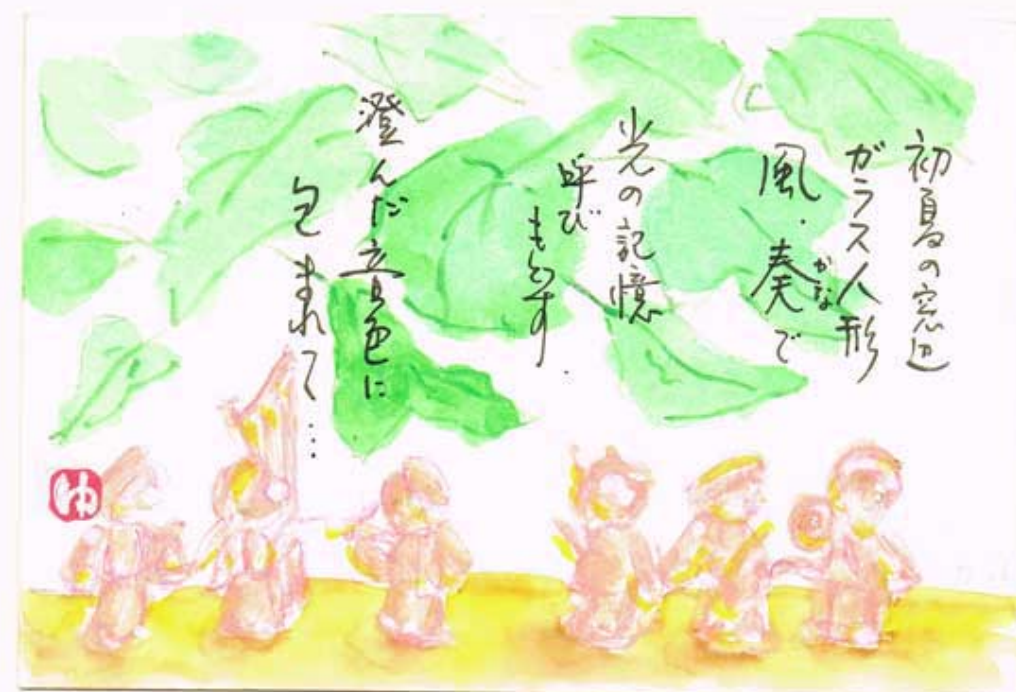 初夏の窓辺
ガラス人形
風・奏で
かな
光の記憶
呼び
もどす
澄んだ音色に
包まれて・・・・
ゆ